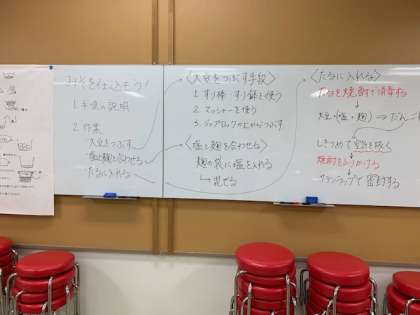 みそを仕込もう!
1. 手順の説明
2. 作業
大豆をつぶす
塩と麹を合わせる
たるに入れる
<大豆をつぶす手段>
1. すり棒・すり鉢を使う
2. マッシャーを使う
3. ジップロックの上からつぶす
<塩と麹を合わせる>
麹の袋に塩を入れる
↳ 混ぜる
<たるに入れる>
を焼酎で消毒する
大豆・(塩・麹) ⇒ だんご
しきつめて空気を抜く
焼酎をふりかける
サランラップで密封する